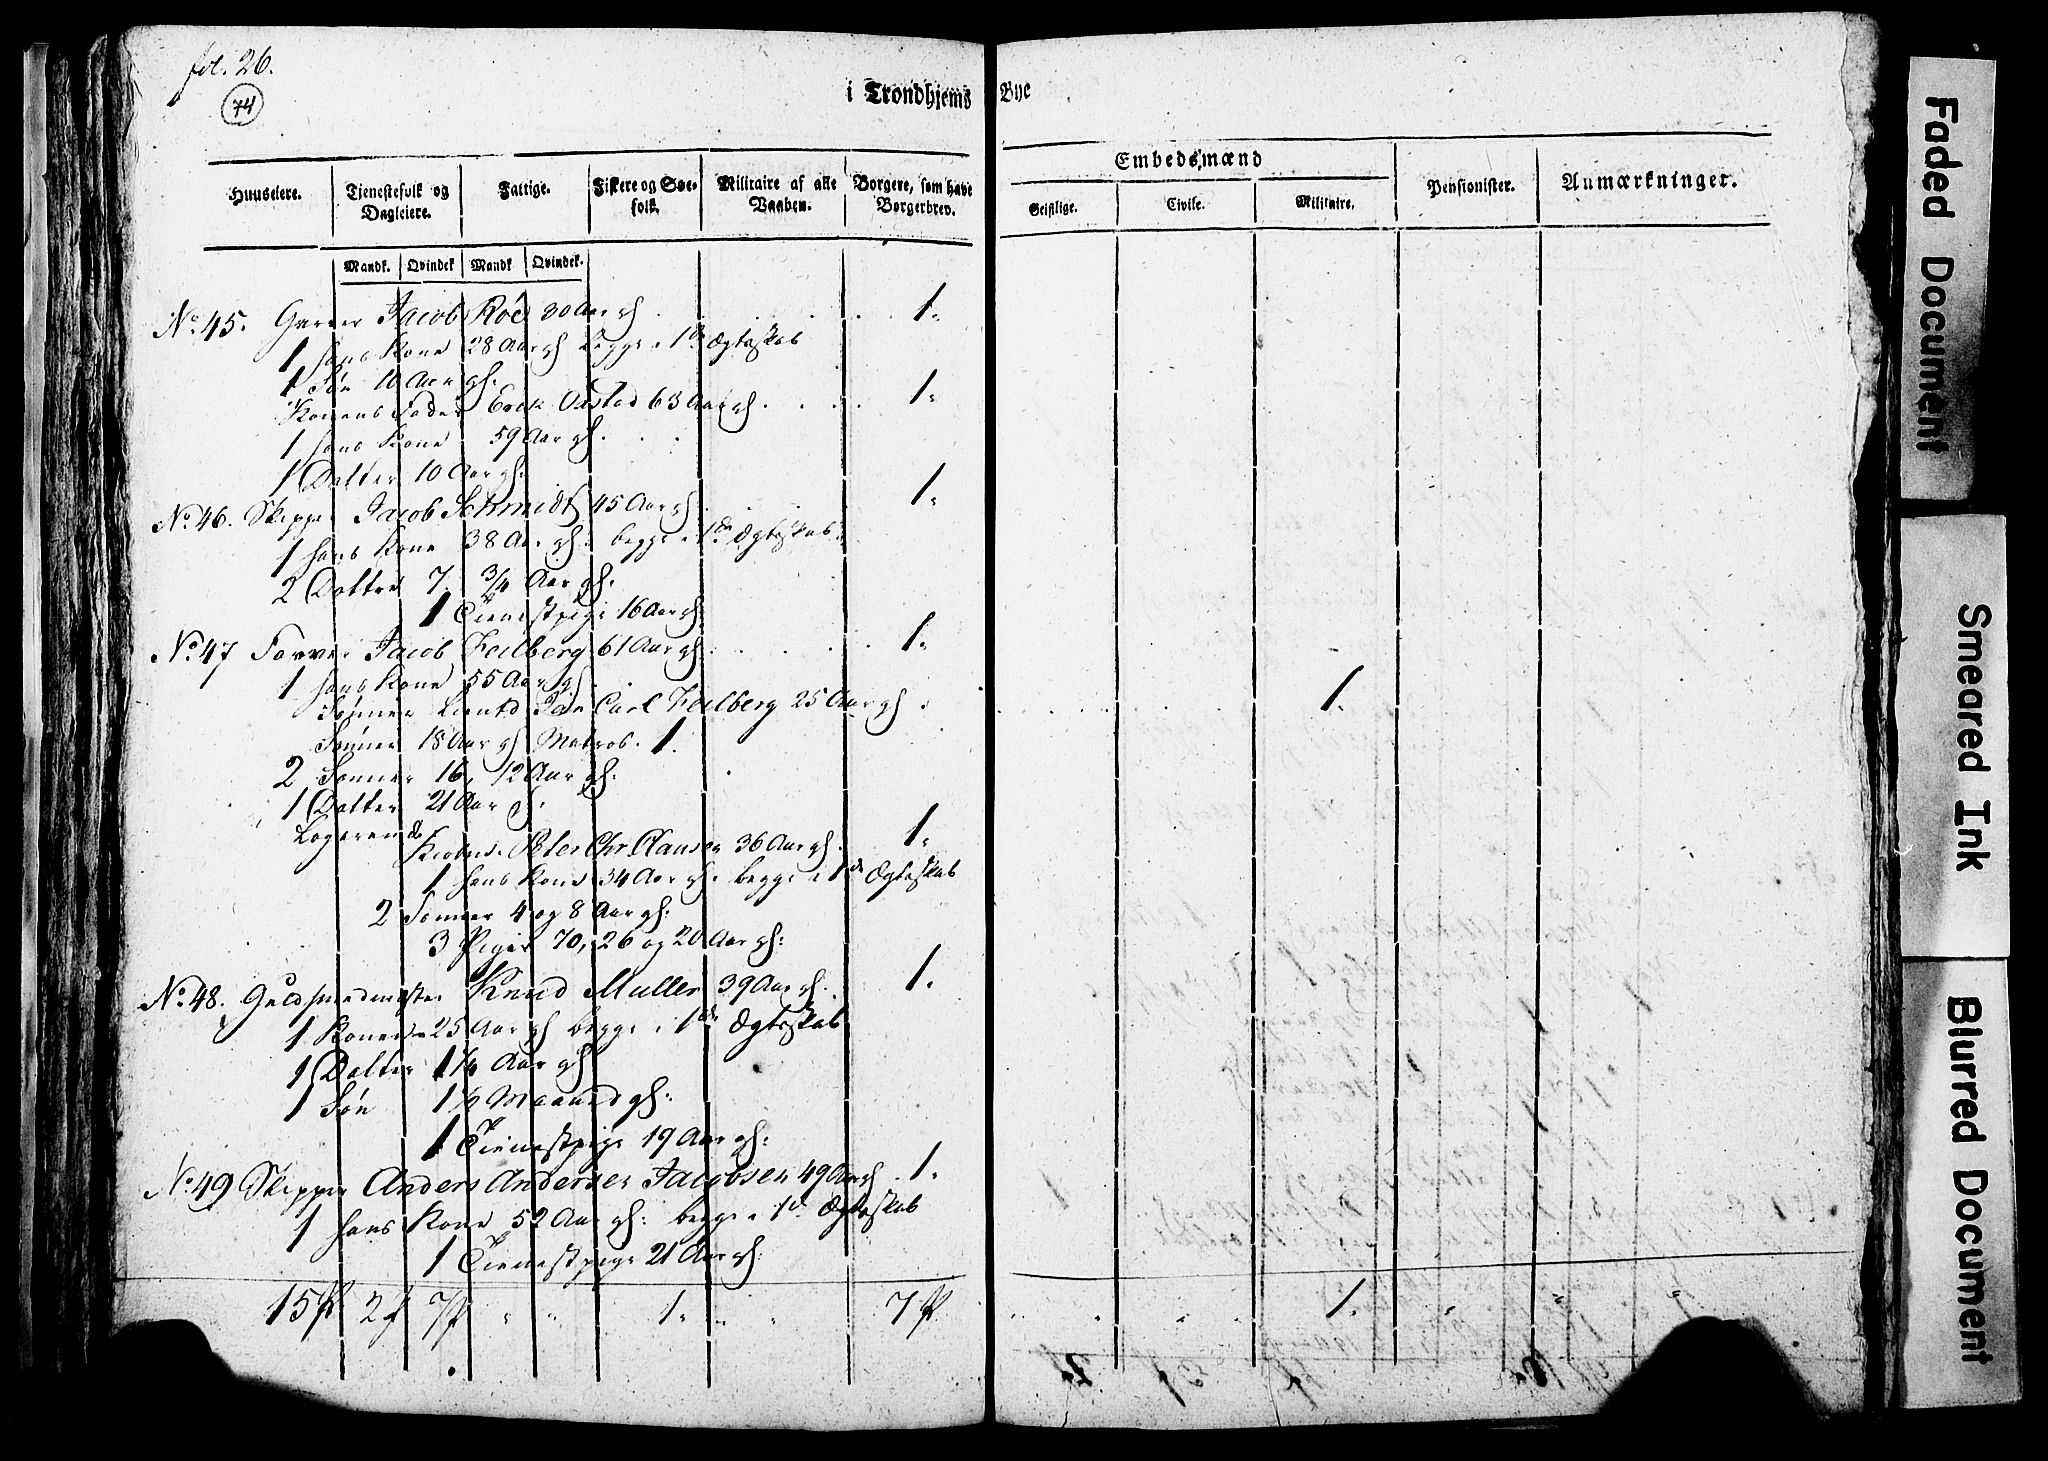 fol. 26.
74
i Trondhjems Bye
Huuseiere. Tjenestefolk og Dagleiere. Fattige. Fiskere og Søe-folk. Militaire af alle Vaaben. Borgere, som have Borgerbrev. Embedsmænd Pensionister. Anmærkninger.
Geistlige. Civile. Militaire.
Mandk. Qvindek Mandk Qvindek.
No. 45. Garver Jacob Roe 30 Aar gl. 1.
1 hans Kone 28 Aar gl begge i 1te Ægteskab
1 Søn 10 Aar gl.
Konens Fader Erek Oxstad 63 Aar gl. 1.
1 hans Kone 59 Aar gl.
1 Datter 10 Aar gl:
No. 46. Skipper Jacob Schmidt 45 Aar gl. 1.
1 hans Kone 38 Aar gl: begge i 1de Ægteskab.
2 Dottre 7. 3/4 Aar gl.
1 Tienestpige 16 Aar gl.
No. 47 Farver Jacob Feilberg 61 Aar gl. 1.
1 hans Kone 55 Aar gl.
Sønner Lieutd Carl Feilberg 25 Aar gl. 1.
Sønner 18 Aar gl Matros. 1.
2 Sønner 16, 12 Aar gl:
1 Datter 21 Aar gl.
Logerende
Kiøbm. Peter Chr. Clausen 36 Aar gl. 1.
1 hans Kone 34 Aar gl. begge i 1de Ægteskab
2 Sønner 4 og 8 Aar gl:
3 Piger 70, 26 og 20 Aar gl:
No. 48. Guldsmedmester Knud Muller 39 Aar gl. 1.
1 Kone 25 Aar gl begge i 1ste Ægteskab
1 Datter 1 1/4 Aar gl
1 Søn 1 1/2 Maaned gl:
1 Tienestpige 19 Aar gl:
No. 49 Skipper Anders Andersen Jacobsen 49 Aar gl. 1.
1 hans Kone 52 Aar gl: begge i 1de Ægteskab
1 Tienestpige 21 Aar gl.
15 2 7 " " 1. " 7 " " 1. " "
Faded Document
Smeared Ink
Blurred Document